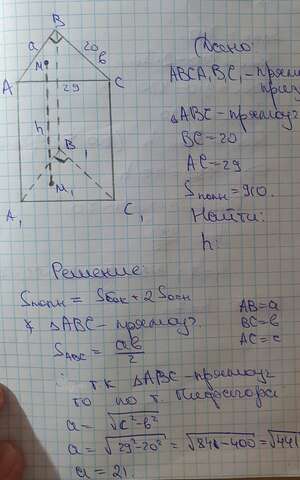 B
a
20
в
M
A
29
C
h
B1
M1
A1
C1
Дано:
ABCA1B1C1 - прям
приз
△ABC - прямоуг
BC = 20
AC = 29
Sполн = 910.
Найти:
h:
Решение:
Sполн = Sбок + 2Sосн
△ABC - прямоуг.
SABC = aв/2
AB = a
BC = в
AC = c
т.к △ABC - прямоуг
то по т. Пифагора
a = √c² - в²
a = √29² - 20² = √841 - 400 = √441
a = 21.